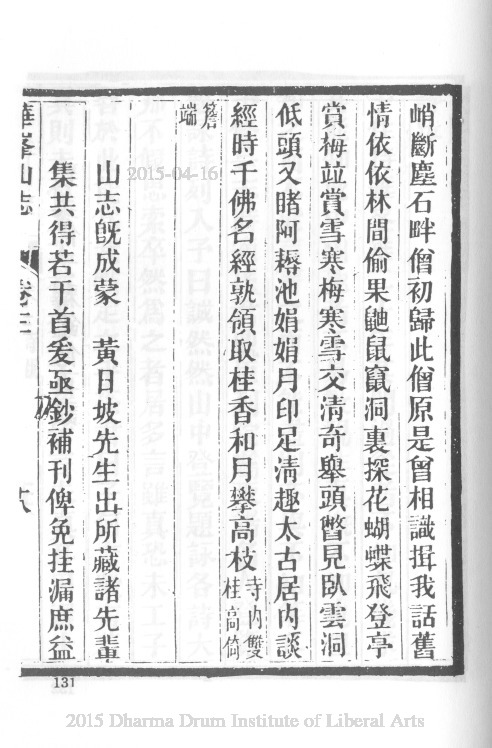 峭斷塵石畔僧初歸此僧原是曾相識揖我話舊
情依依林間偷果鼪鼠竄洞裏探花蝴蝶飛登亭
賞梅竝賞雪寒梅寒雪交淸奇舉頭瞥見臥雲洞
低頭又睹阿耨池娟娟月印足淸趣太古居內談
經時千佛名經孰領取桂香和月攀高枝寺內雙桂高倚
簷端
山志旣成蒙　黃日坡先生出所藏諸先輩
集共得若干首爰亟鈔補刊俾免挂漏庶益
華峯山志　卷三　十八
2015-04-16
131
2015 Dharma Drum Institute of Liberal Arts